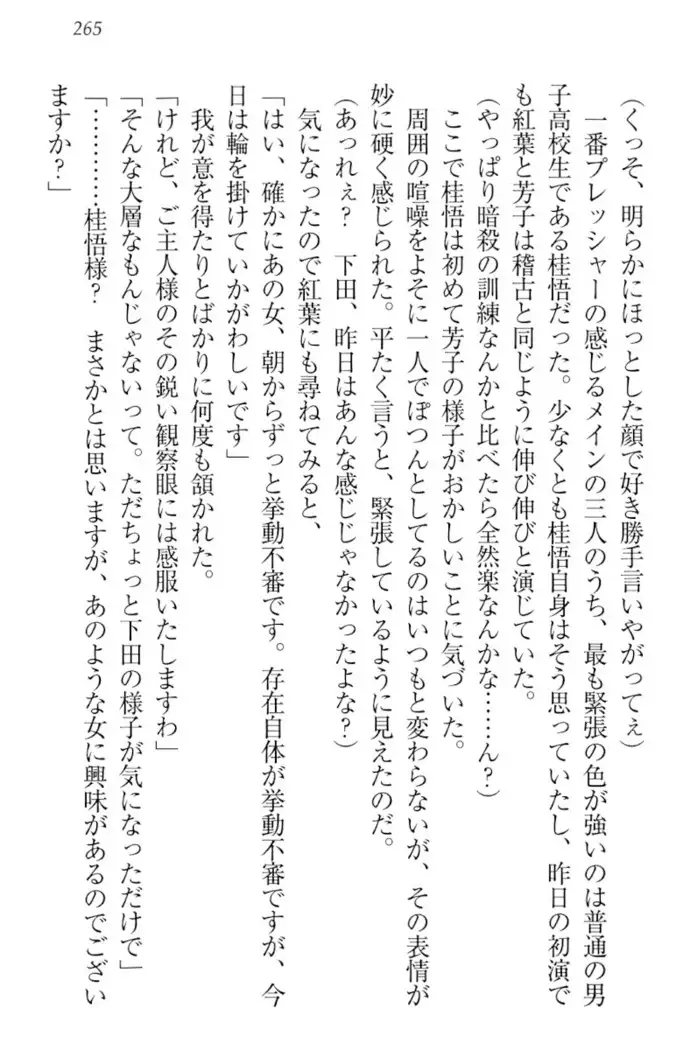 265
(くっそ、明らかにほっとした顔で好き勝手言いやがってぇ)
一番プレッシャーの感じるメインの三人のうち、最も緊張の色が強いのは普通の男
子高校生である桂悟だった。少なくとも桂悟自身はそう思っていたし、昨日の初演で
も紅葉と芳子は稽古と同じように伸び伸びと演じていた。
(やっぱり暗殺の訓練なんかと比べたら全然楽なんかな……ん?)
ここで桂悟は初めて芳子の様子がおかしいことに気づいた。
周囲の喧噪をよそに一人でぽつんとしてるのはいつもと変わらないが、その表情が
妙に硬く感じられた。平たく言うと、緊張しているように見えたのだ。
(あっれぇ? 下田、昨日はあんな感じじゃなかったよな?)
気になったので紅葉にも尋ねてみると、
「はい、確かにあの女、朝からずっと挙動不審です。存在自体が挙動不審ですが、今
日は輪を掛けていかがわしいです」
我が意を得たりとばかりに何度も頷かれた。
「けれど、ご主人様のその鋭い観察眼には感服いたしますわ」
「そんな大層なもんじゃないって。ただちょっと下田の様子が気になっただけで」
「…………桂悟様? まさかとは思いますが、あのような女に興味があるのでござい
ますか?」